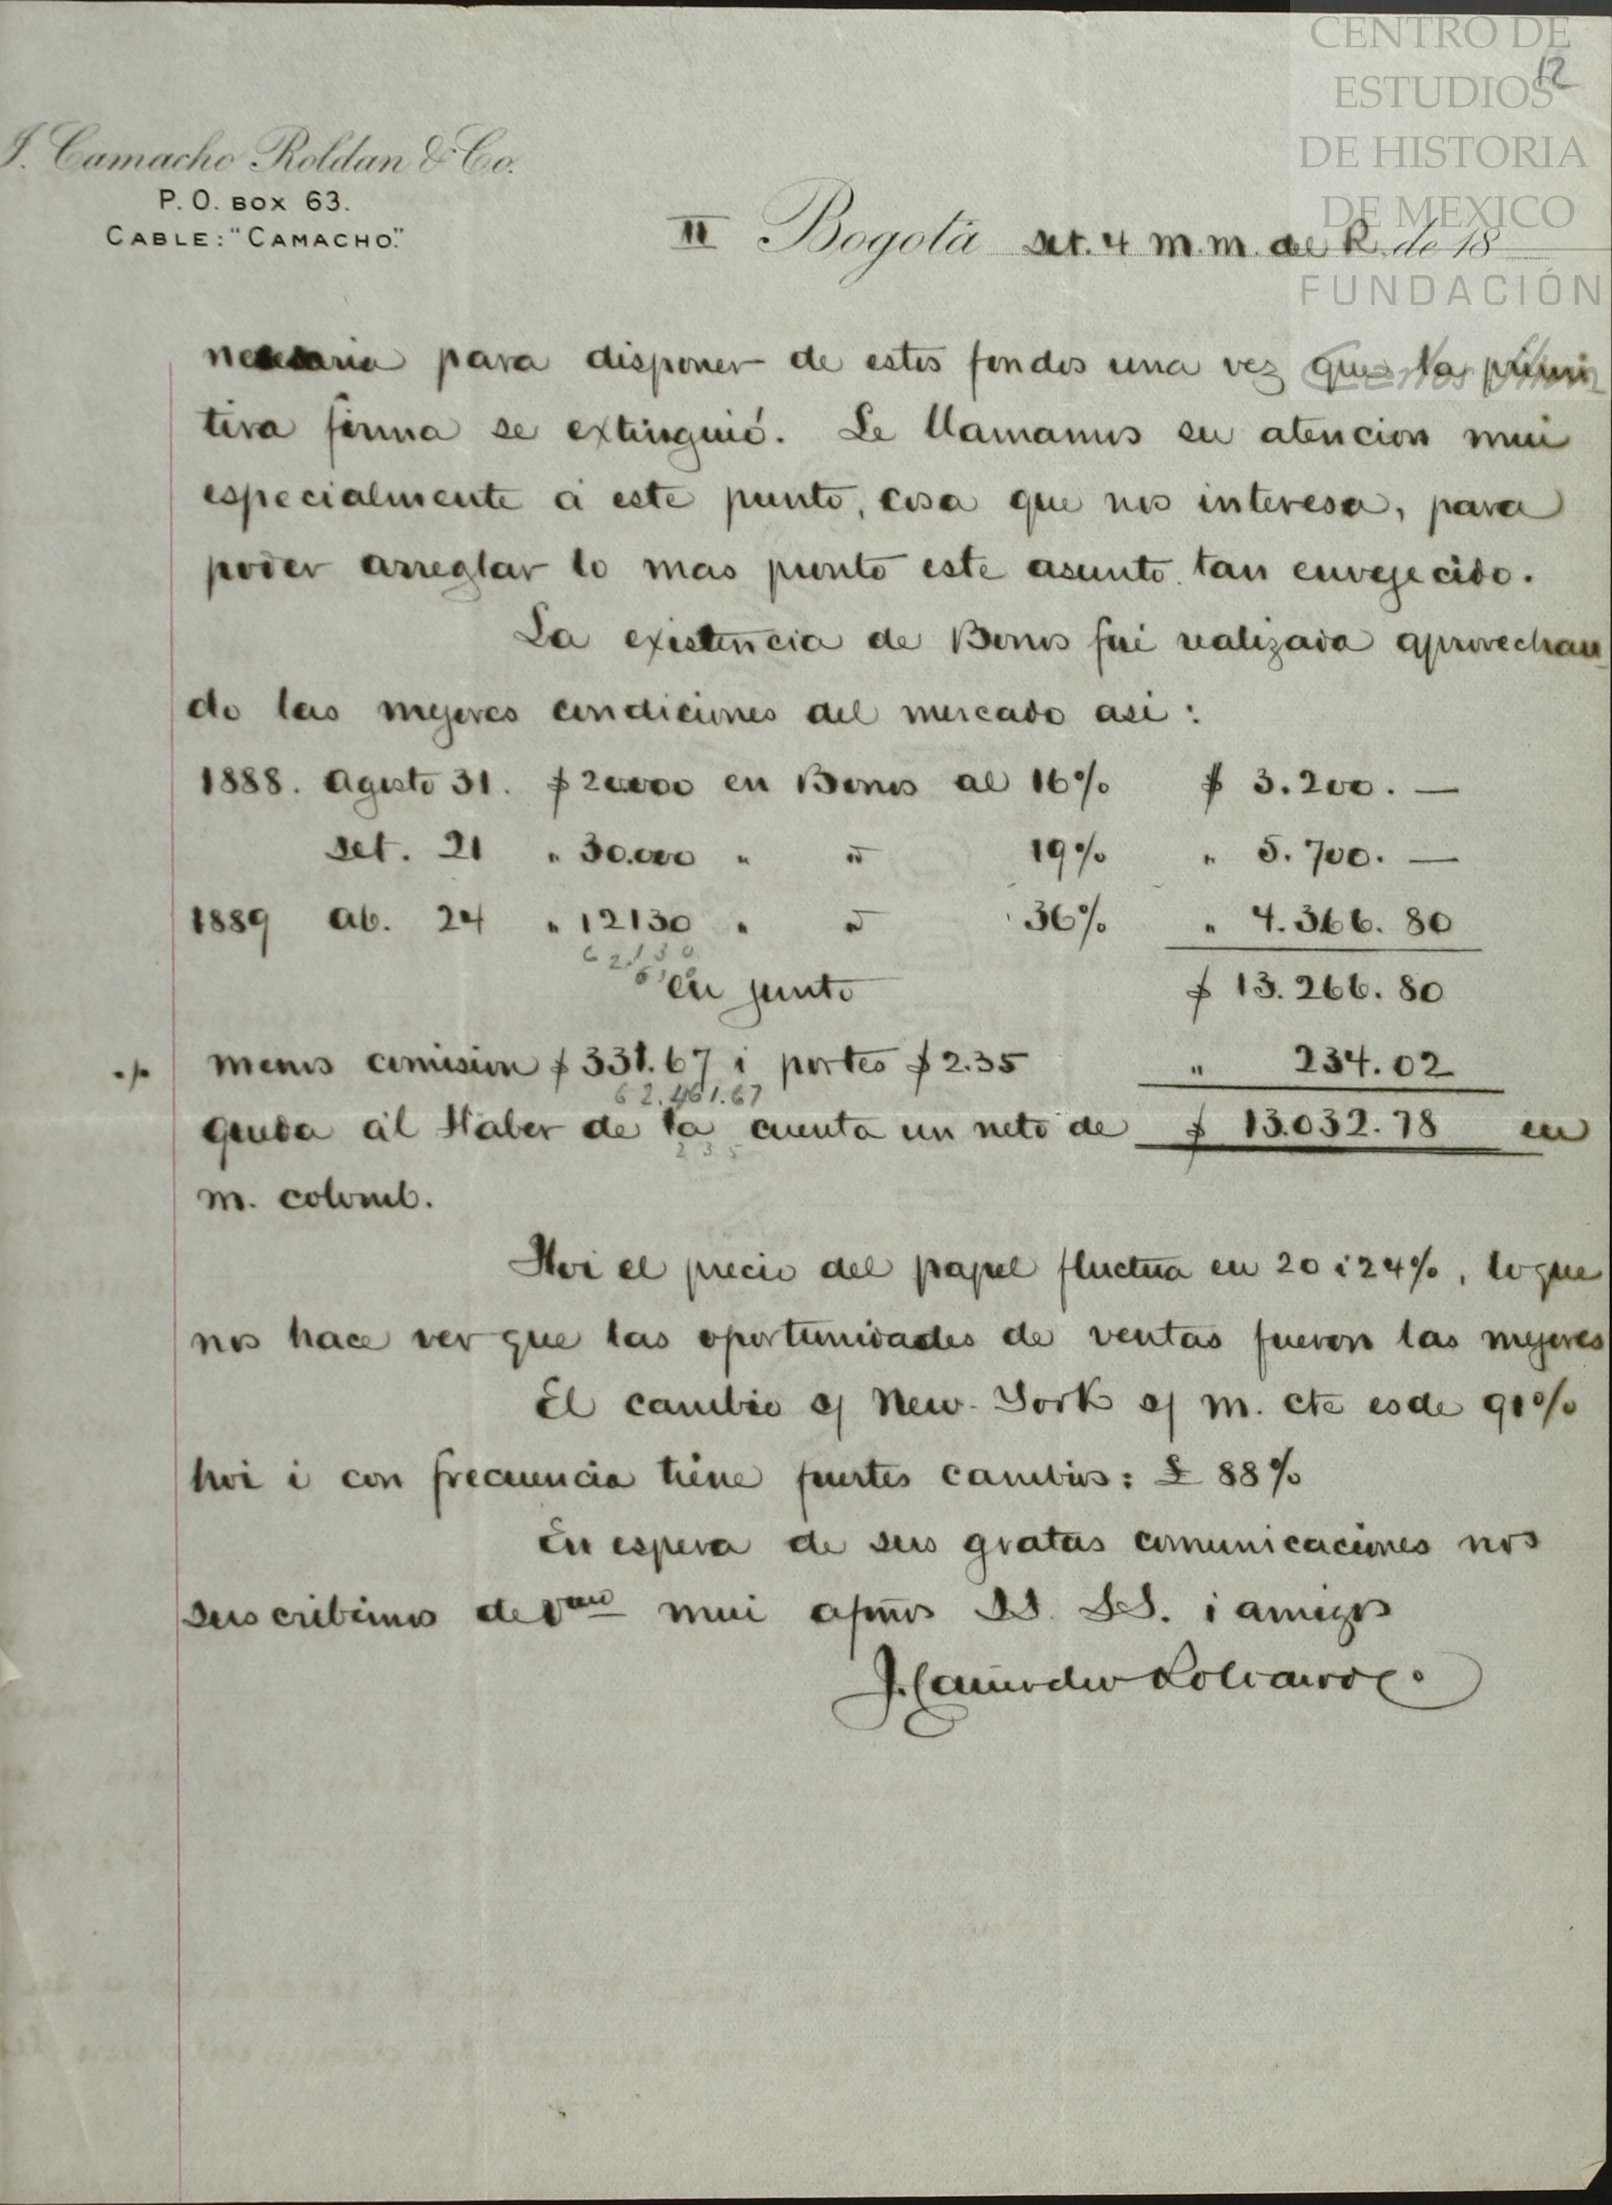 CENTRO DE
ESTUDIOS
DE HISTORIA
DE MEXICO
FUNDACIÓN
12
J. Camacho Roldan & Co.
P. O. BOX 63.
CABLE: "CAMACHO."
II Bogotá set. 4 m.m. de R. de 18
necesaria para disponer de estos fondos una vez que la primi
tiva firma se extinguió. Le llamamos su atencion mui
especialmente á este punto, cosa que nos interesa, para
poder arreglar lo mas pronto este asunto tan envejecido.
La existencia de Bonos fué realizada aprovechan
do las mejores condiciones del mercado asi:
1888. Agosto 31. $ 20.000 en Bonos al 16% $ 3.200. —
set. 21 " 30.000 " " 19% " 5.700. —
1889 Ab. 24 " 12130 " " 36% " 4.366. 80
62.130
en junto $ 13.266. 80
./. menos comision $ 331.67 i portes $ 2.35 " 234.02
62.461.67
queda al Haber de la cuenta un neto de $ 13.032.78 en
2 3 5
m. colomb.
Hoi el precio del papel fluctúa en 20 i 24%, lo que
nos hace ver que las oportunidades de ventas fueron las mejores
El cambio s/ New-York s/ m. cte es de 91%
hoi i con frecuencia tiene fuertes cambios: £ 88%
En espera de sus gratas comunicaciones nos
suscribimos de mui afmos SS. SS. i amigos
J. Camacho Roldan & Co.